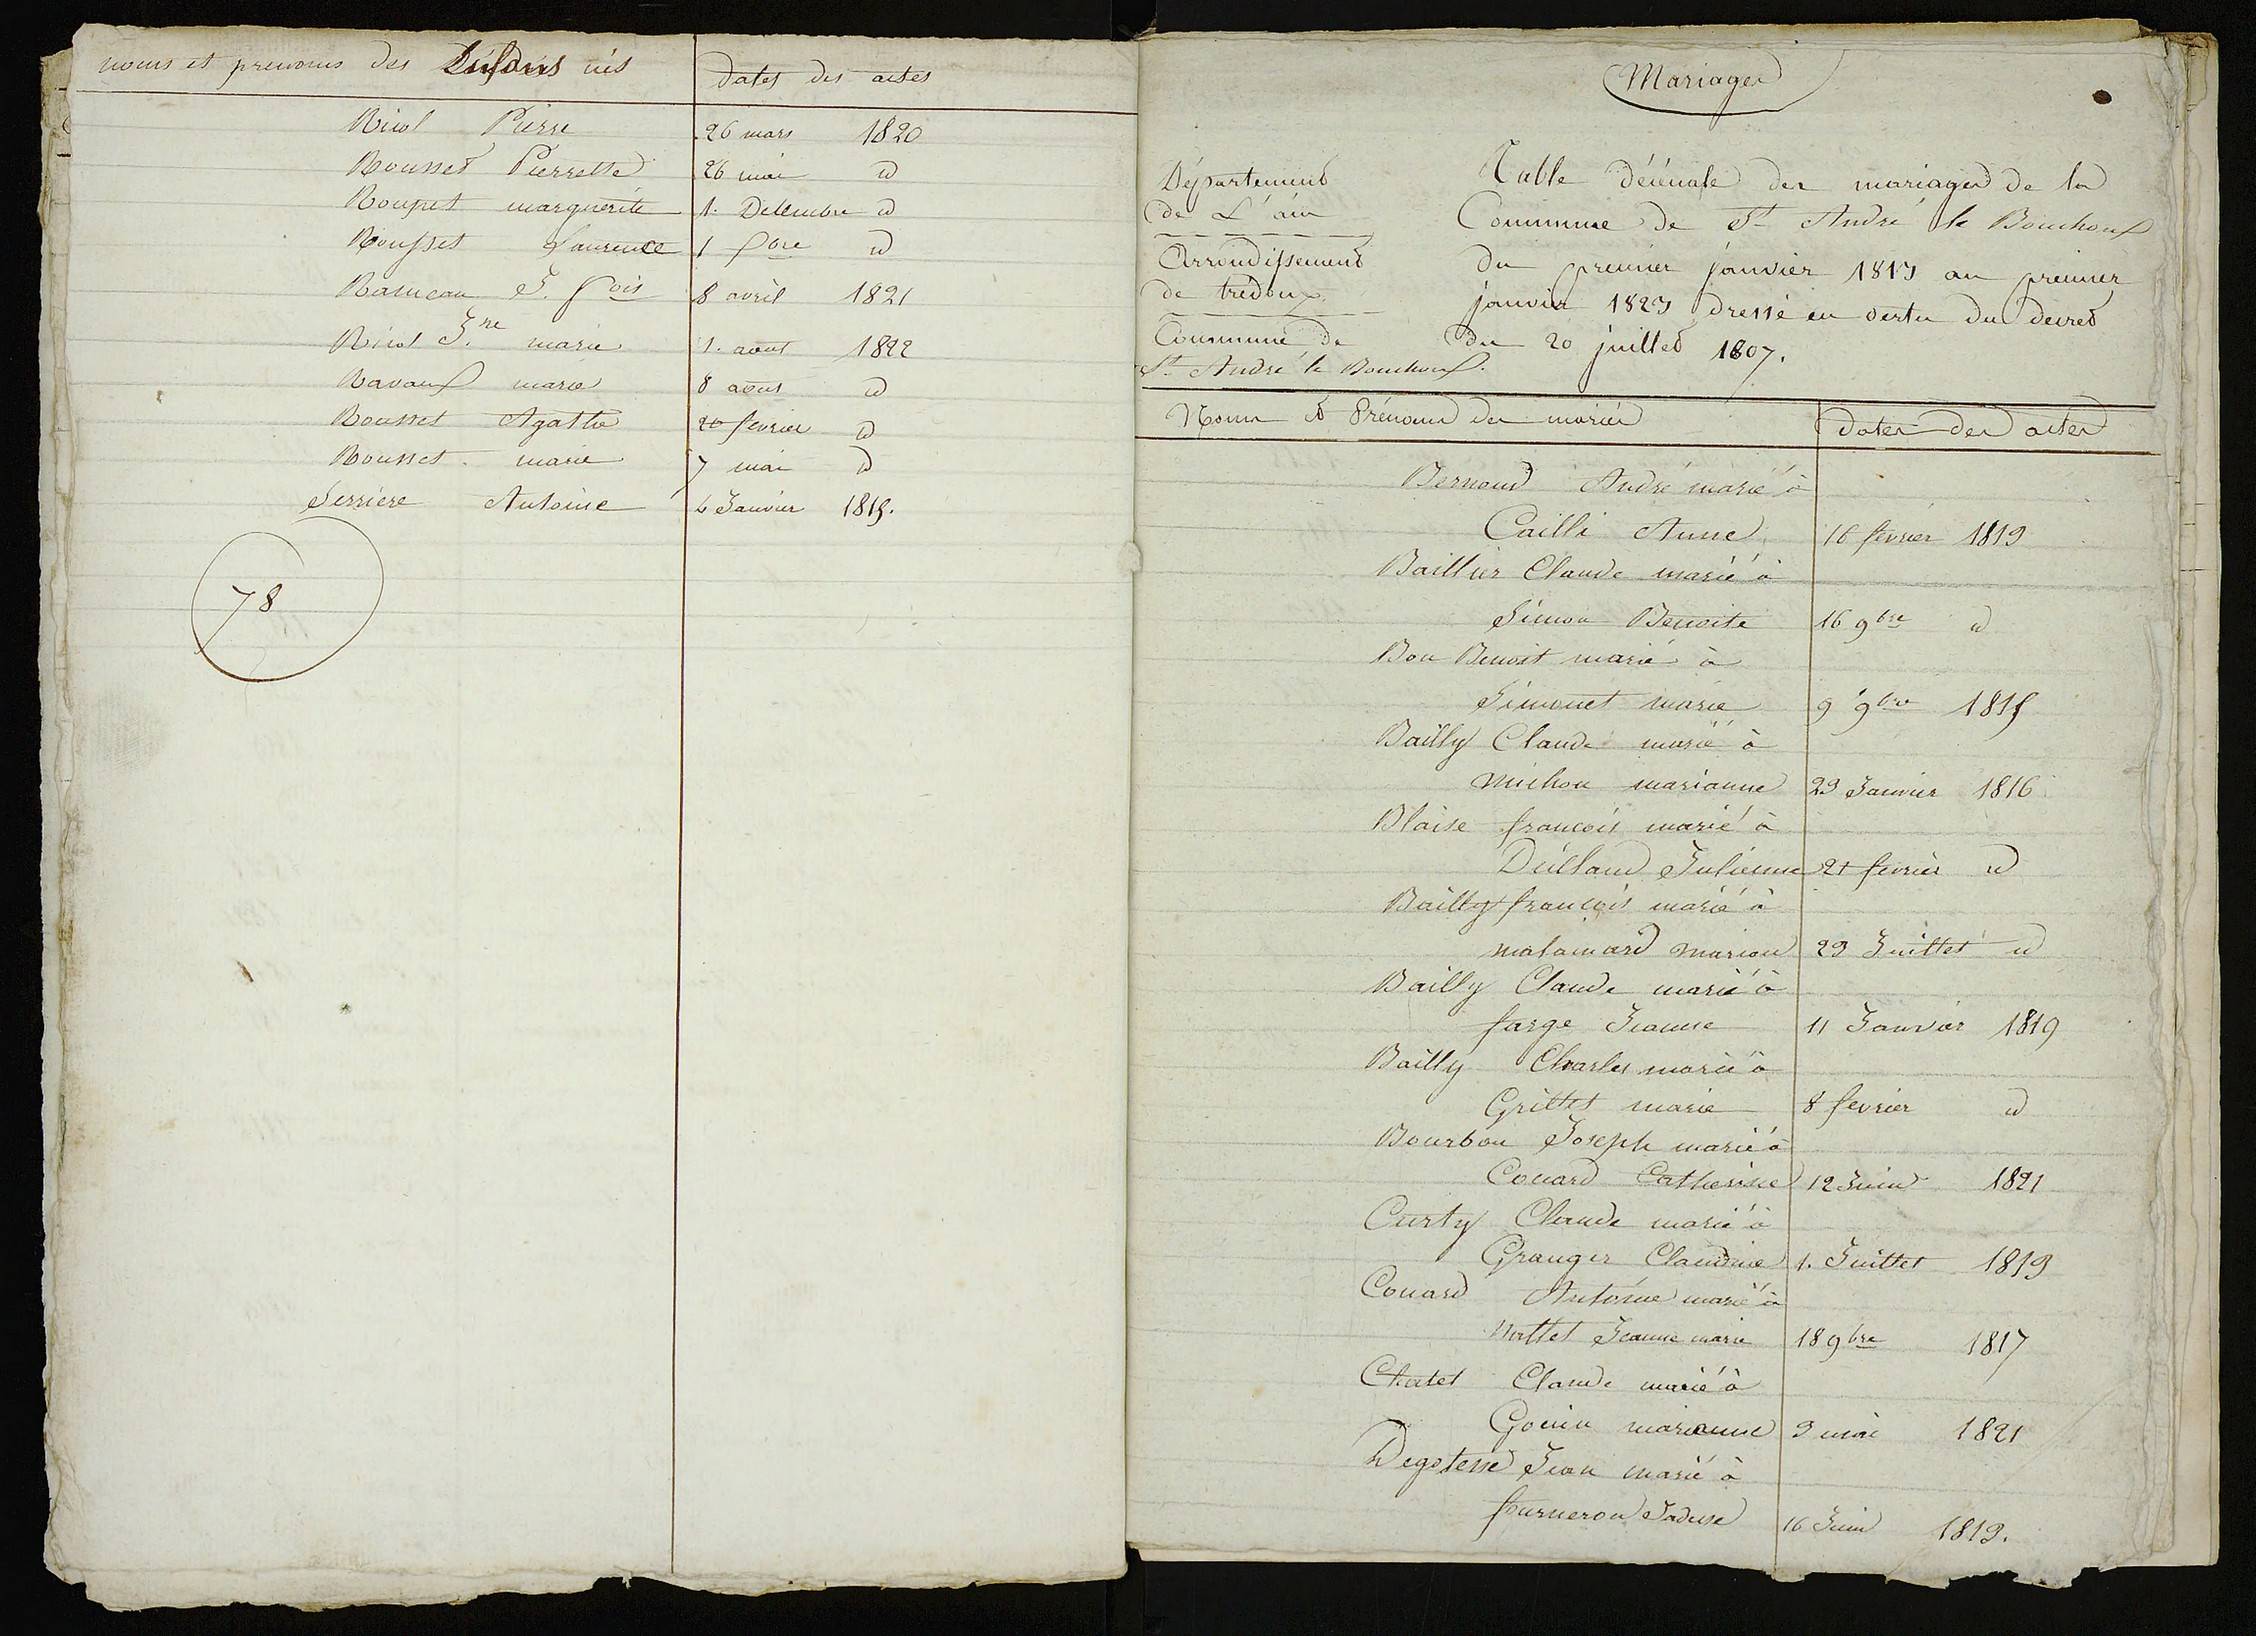 noms et prenoms des Enfans nés dates des actes
Ricol Pierre 26 mars 1820
Rousset Pierrette 26 mai id
Rousset marguerite 1. Décembre id
Rousset Laurence 1 id
Rameau J. fois 8 avril 1821
Ricol Jne marie 1. aout 1822
Ravaux marie 8 aout id
Rousset Agathe 20 fevrier id
Rousset marie 7 mai id
Serriere Antoine 4 Janvier
78
Mariages
Département
de L'ain
Arrondissement
de trevoux
Commune de
St André le Bouchoux.
Table décénale des mariages de la
Commune de St André le Bouchoux
du premier janvier 1813 au premier
janvier 1823 dressé en vertu du decret
du 20 juillet 1807.
Noms et Prénoms des mariés dates des actes
Bernoud André marié à
Cailli Anne 16 fevrier 1813
Baillier Claude marié à
Simon Benoite 16 9bre id
Bon Benoit marié à
Simonet marie 9 9bre 1815
Bailly Claude marié à
Michon marianne 23 Janvier 1816
Blaise françois marié à
Julienne 21 fevrier id
Bailly françois marié à
malamard marion 23 Juillet id
Bailly Claude marié à
farge Jeanne 11 Janvier 1819
Bailly Charles marié à
Grillet marie 8 fevrier id
Bourbon Joseph marié à
Couard Catherine 12 Juin 1821
Curty Claude marié à
Granger Claudine 1. Juillet 1813
Couard Antoine marié à
Jeanne marie 18 9bre 1817
Chatel Claude marié à
Gouin marianne 3 mai 1821
Degotesse Jean marié à
fourneron 16 Juin 1813.